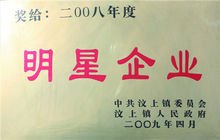 奖给：二00八年度
明星企业
中共汶上镇委员会
汶上镇人民政府
二00九年四月